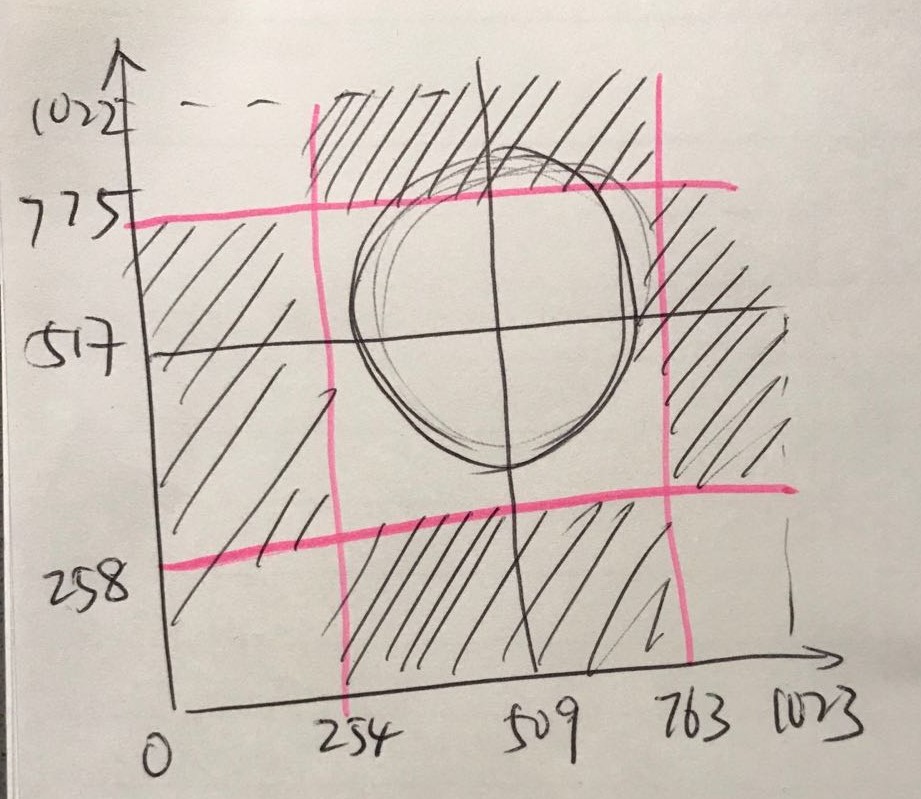 1022
775
517
258
0 254 509 763 1023